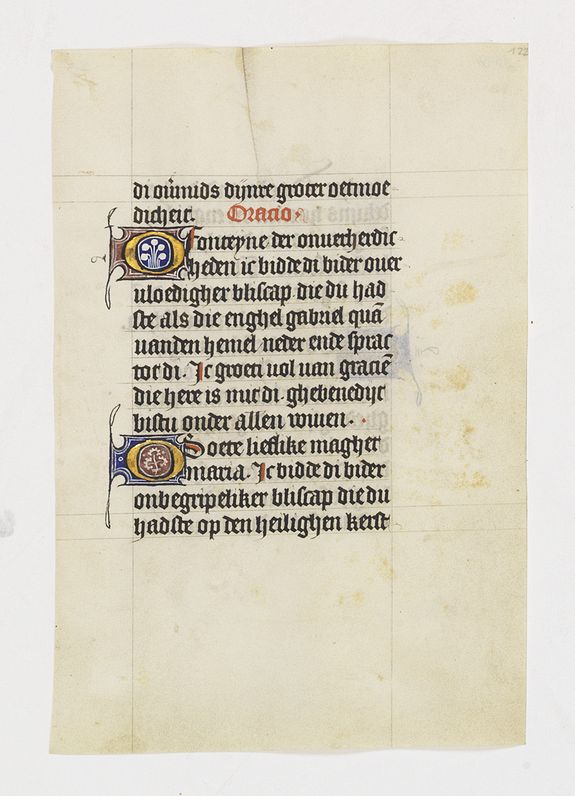 122
di oūmids dynre groter oetmoe
dicheit. Oracio.
O Fonteyne der onuerherdic
heden ic bidde di bider ouer
uloedigher bliscap die du had
ste als die enghel gabriel quā
uanden hemel neder ende sprac
tot di. Ic groeti uol uan graciē
die here is mit di. ghebenedijt
bistu onder allen wiuen.
O Soete lieflike magher
maria. Ic bidde di bider
onbegripeliker bliscap die du
hadste op den heilighen kerst